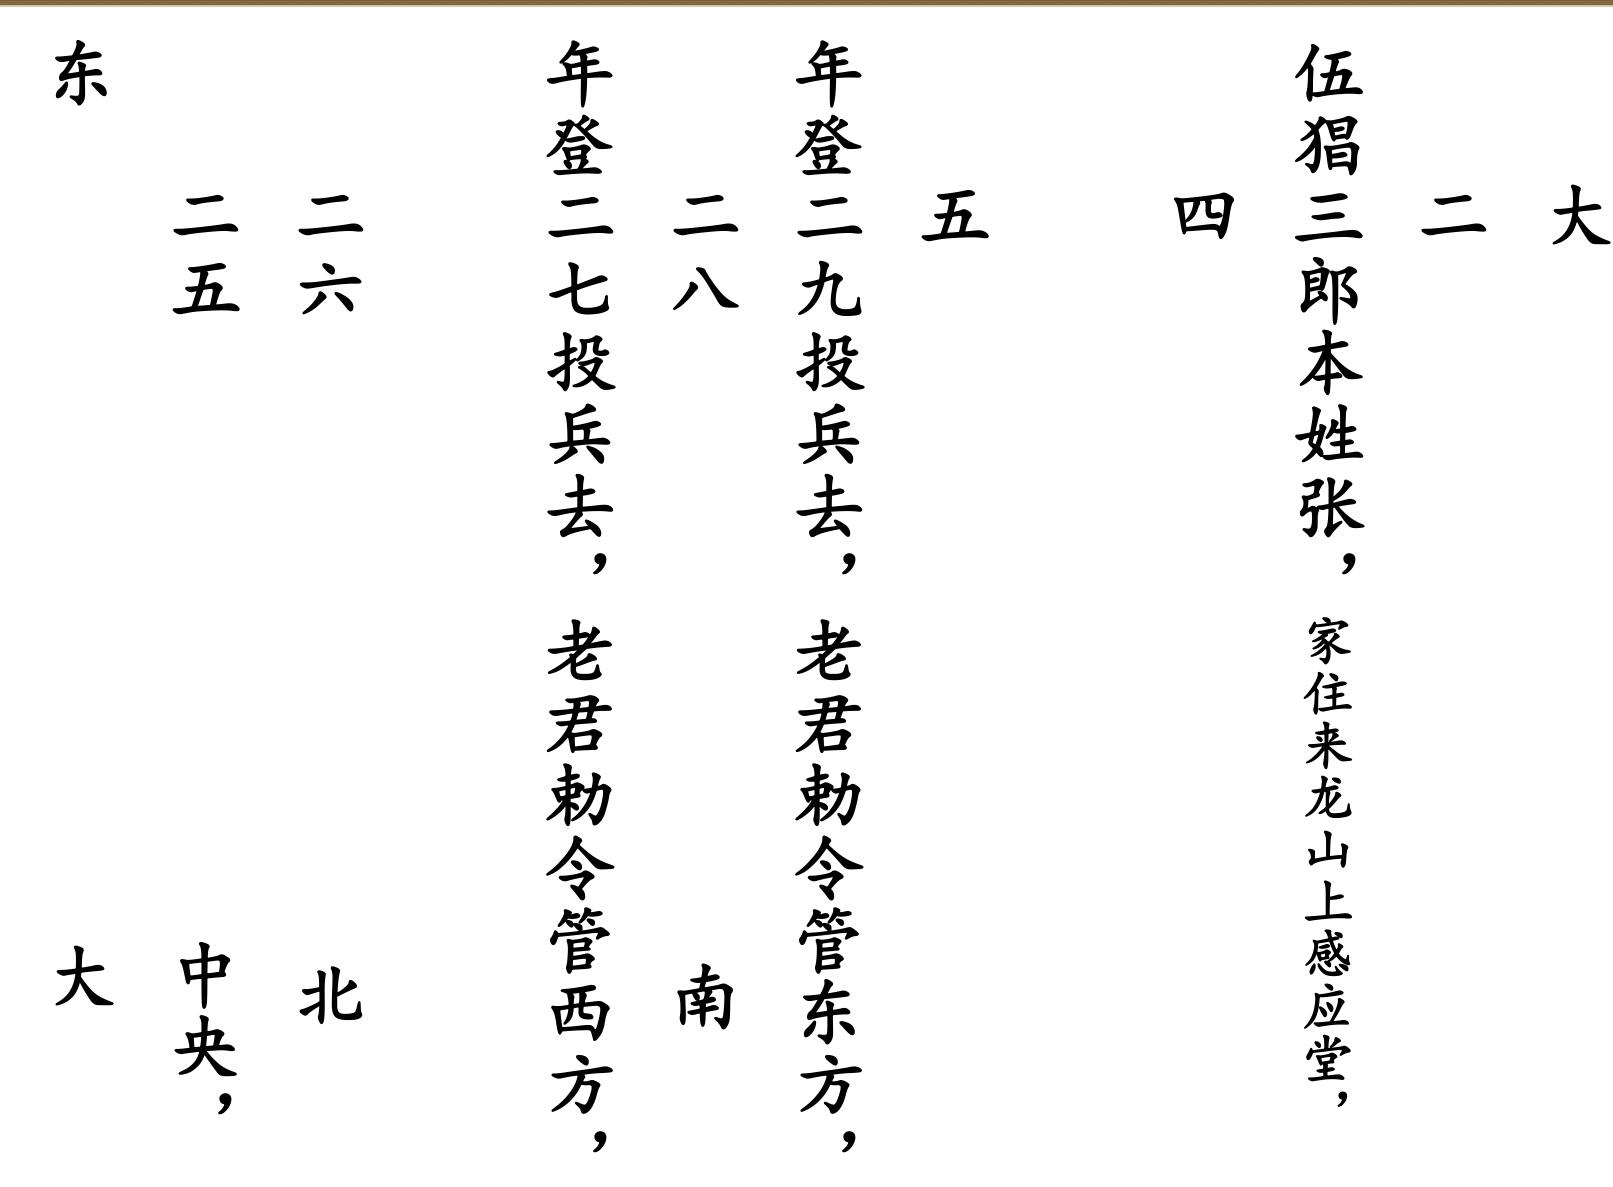 大
二
伍猖三郎本姓张，家住来龙山上感应堂，
四
五
年登二九投兵去，老君勅令管东方，
二八 南
年登二七投兵去，老君勅令管西方，
二六 北
二五 中央，
东 大